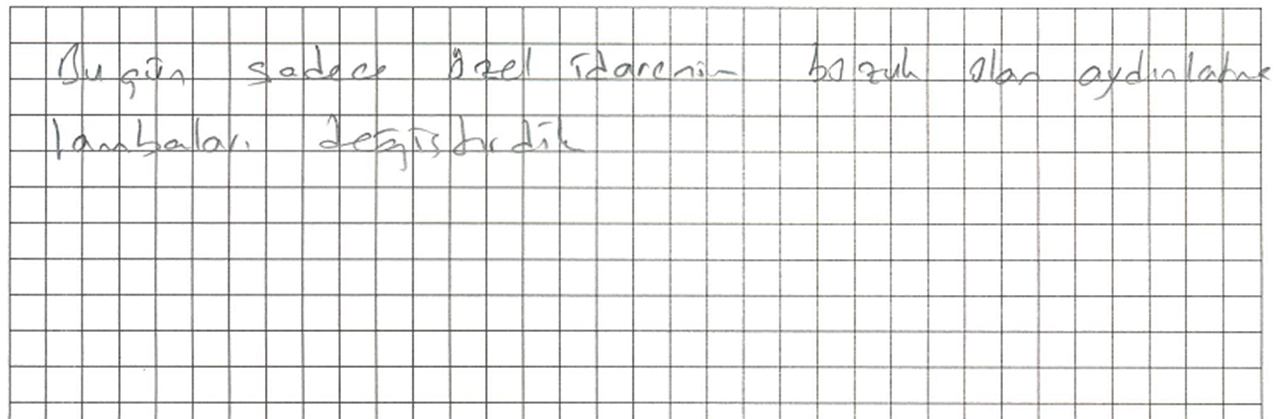 Bugün sadece özel idarenin bozuk olan aydınlatma
lambaları değiştirdik